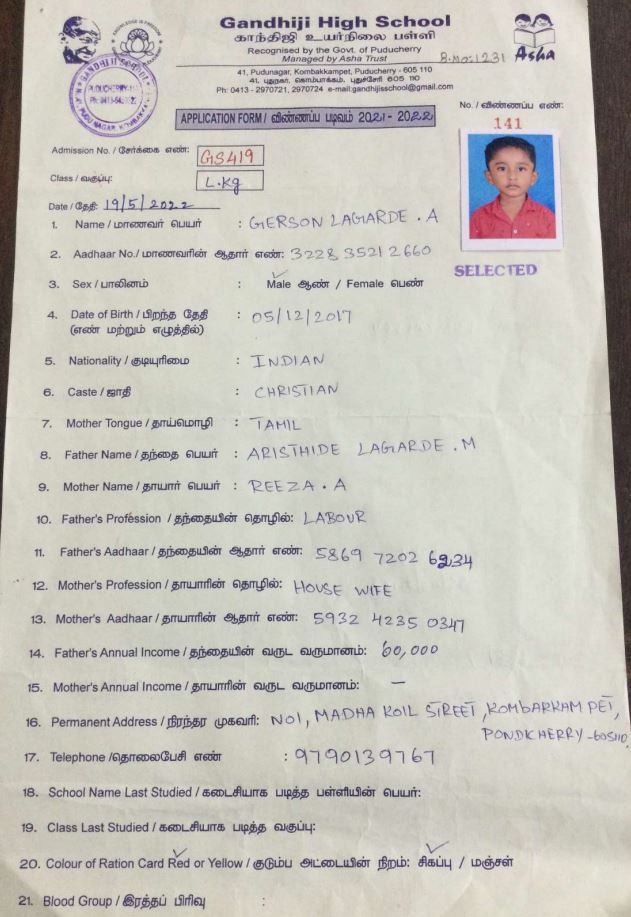 Gandhiji High School
காந்திஜி உயர்நிலை பள்ளி
Recognised by the Govt. of Puducherry
Managed by Asha Trust
B.No:1231
Asha
41, Pudunagar, Kombakkampet, Puducherry - 605 110
41, புதுநகர், கொம்பாக்கம், புதுச்சேரி 605 110
Ph: 0413 - 2970721, 2970724 e-mail:gandhijisschool@gmail.com
APPLICATION FORM / விண்ணப்ப படிவம் 2021 - 2022
No. / விண்ணப்ப எண்:
141
Admission No. / சேர்க்கை எண்: GS419
Class / வகுப்பு: L.kg
Date / தேதி: 19/5/2022
1. Name / மாணவர் பெயர் : GERSON LAGARDE . A
2. Aadhaar No./ மாணவரின் ஆதார் எண்: 3228 3521 2660
SELECTED
3. Sex / பாலினம் : Male ஆண் / Female பெண்
4. Date of Birth / பிறந்த தேதி : 05/12/2017
(எண் மற்றும் எழுத்தில்)
5. Nationality / குடியுரிமை : INDIAN
6. Caste / ஜாதி : CHRISTIAN
7. Mother Tongue / தாய்மொழி : TAMIL
8. Father Name / தந்தை பெயர் : ARISTHIDE LAGARDE . M
9. Mother Name / தாயார் பெயர் : REEZA . A
10. Father's Profession / தந்தையின் தொழில்: LABOUR
11. Father's Aadhaar / தந்தையின் ஆதார் எண்: 5869 7202 6234
12. Mother's Profession / தாயாரின் தொழில்: HOUSE WIFE
13. Mother's Aadhaar / தாயாரின் ஆதார் எண்: 5932 4235 0347
14. Father's Annual Income / தந்தையின் வருட வருமானம்: 60,000
15. Mother's Annual Income / தாயாரின் வருட வருமானம்: —
16. Permanent Address / நிரந்தர முகவரி: NO1, MADHA KOIL STREET, KOMBARKAM PET,
PONDICHERRY - 605110.
17. Telephone /தொலைபேசி எண் : 9790139767
18. School Name Last Studied / கடைசியாக படித்த பள்ளியின் பெயர்:
19. Class Last Studied / கடைசியாக படித்த வகுப்பு:
20. Colour of Ration Card Red or Yellow / குடும்ப அட்டையின் நிறம்: சிகப்பு / மஞ்சள்
21. Blood Group / இரத்தப் பிரிவு :